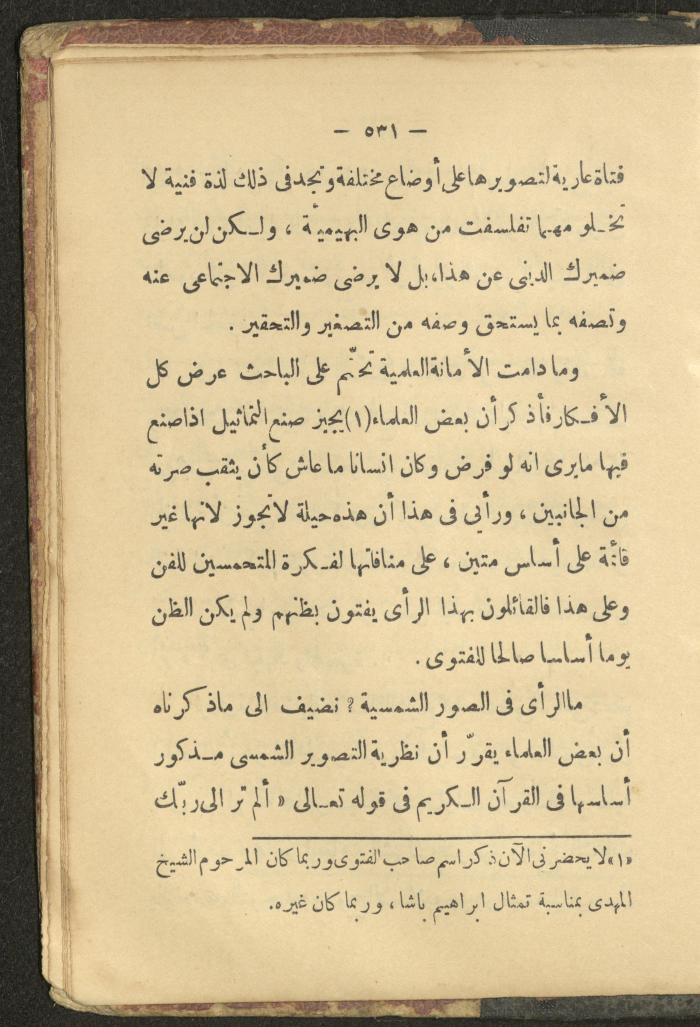 — ٥٣١ —
فتاة عارية لتصويرها على أوضاع مختلفة وتجد فى ذلك لذة فنية لا
تخـلو مهـما تفلسفت من هوى البهيمية ، ولـكن لن يرضى
ضميرك الدينى عن هذا، بل لا يرضى ضميرك الاجتماعى عنه
وتصفه بما يستحق وصفه من التصغير والتحقير .
وما دامت الأمانة العلمية تحتّم على الباحث عرض كل
الأفـكار فأذكر أن بعض العلماء (١) يجيز صنع التماثيل اذا صنع
فيها مايرى انه لو فرض وكان انسانا ما عاش كأن يثقب صرته
من الجانبين ، ورأيي فى هذا أن هذه حيلة لاتجوز لانها غير
قائمة على أساس متين ، على منافاتها لفـكرة المتحمسين للفن
وعلى هذا فالقائلون بهذا الرأى يفتون بظنهم ولم يكن الظن
يوما أساسا صالحا للفتوى .
ماالرأى فى الصور الشمسية ؟ نضيف الى ماذكرناه
أن بعض العلماء يقرّر أن نظرية التصوير الشمسى مـذكور
أساسها فى القرآن الـكريم فى قوله تعـالى « ألم تر الى ربّك
«١» لا يحضرنى الآن ذكر اسم صاحب الفتوى وربما كان المرحوم الشيخ
المهدى بمناسبة تمثال ابراهيم باشا ، وربما كان غيره.